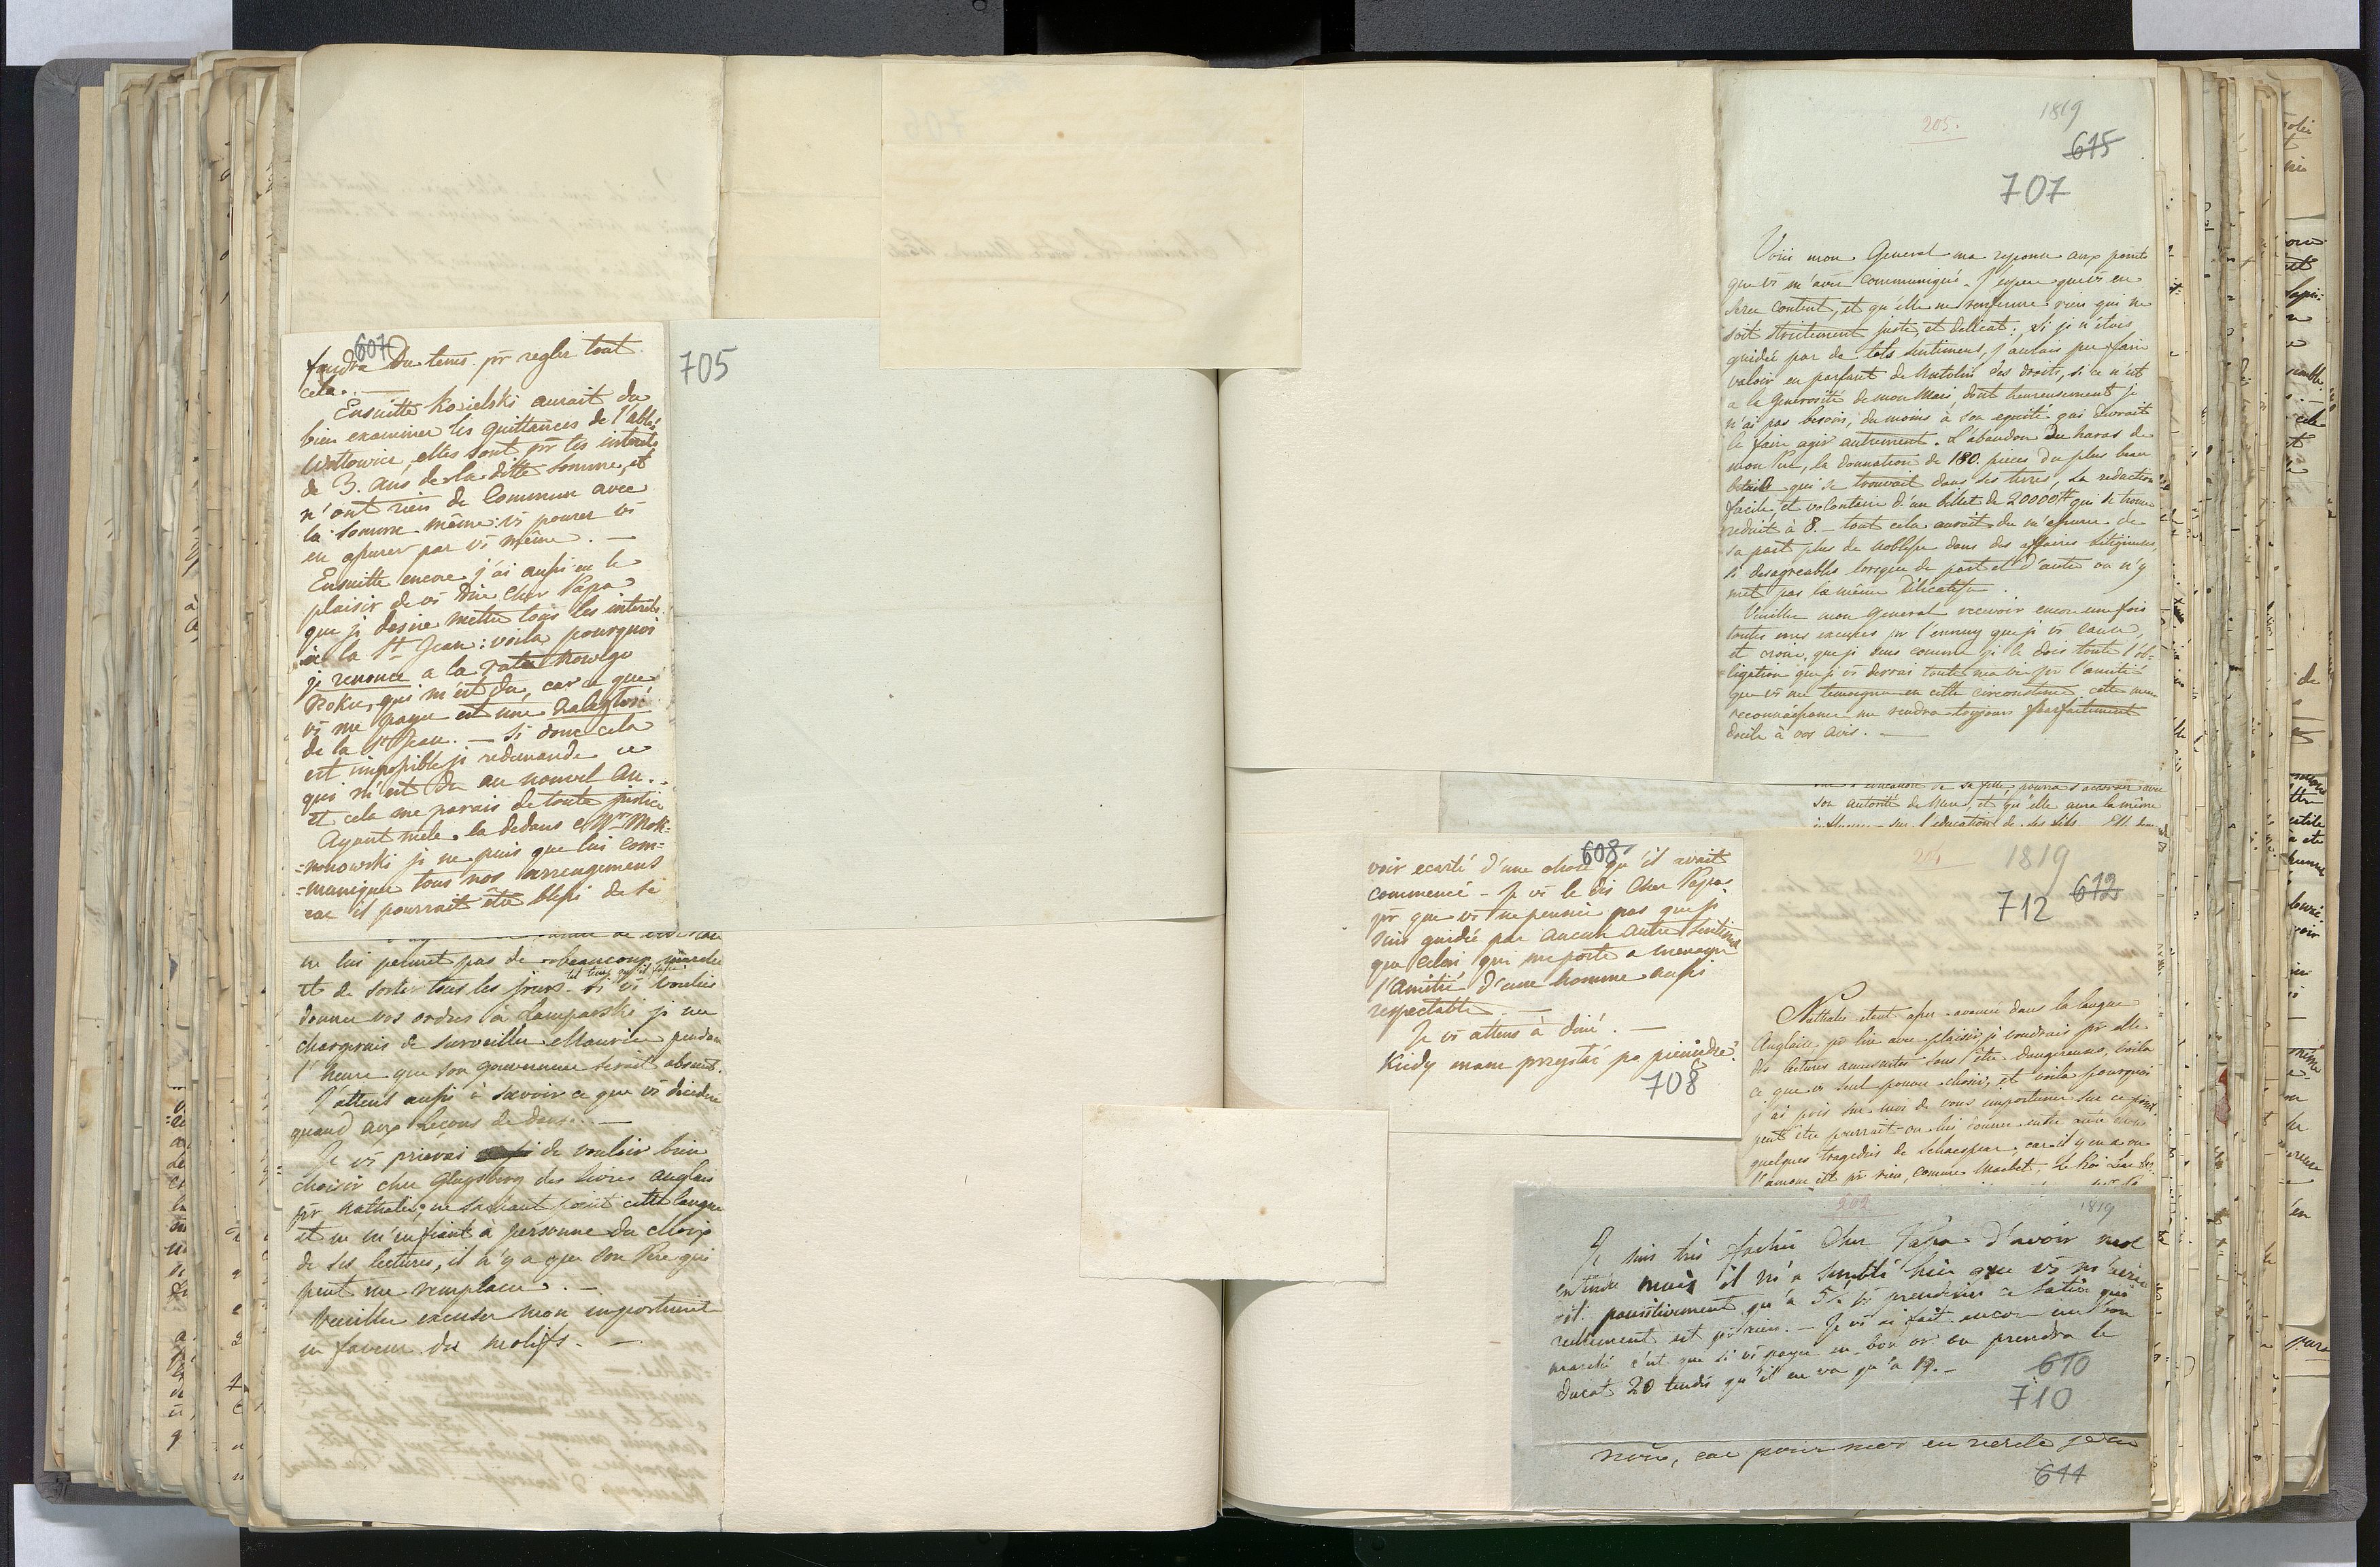 607
faudra du tems pr regler tout
cela. —
Ensuitte Kozielski aurait du
bien examiner les quittances de l'abbé
elles sont pr les interets
de 3. ans de la ditte somme, et
n'ont rien de Commun avec
la somme même: vs pouvez vs
en assurer par vs même. —
Ensuitte encore j'ai aussi eu le
plaisir de vs dire cher Papa
que je desire mettre tous les interets
a la St Jean: voila pourquoi
je renonce a la rata nowego
Roku, qui m'est du, car ce que
vs me payez est une zaległość
de la St Jean. — Si donc cela
est impossible je redemande ce
qui m'est du au nouvel an. —
et cela me parais de toute justice
Ayant melé la dedans Mr Mok=
=ronowski je ne puis que lui com=
=muniquer tous nos arrengemens
car il pourrait être blessé de se
705
ne lui permet pas de beaucoup marcher
et de sortir tous les jours tel tems qu'il fasse. Si vs vouliez
donner vos ordres à Lamparski je me
chargerais de surveiller Maurice pendant
l'heure que son gouverneur serait absent.
J'attens aussi à savoir ce que vs decidez
quand aux leçons de danse. —
Je vs prierai de vouloir bien
choisir chez Glugsberg des livres anglais
pr Nathalie; ne sachant point cette langue
et ne m'enfiant à personne du choix
de ses lectures, il n'y a que son Pere qui
peut me remplacer. —
Veuillez excuser mon importunité
en faveur des motifs. —
205.
1819
615
707
Voici mon General ma reponse aux points
que vs m'avez communiqué. J'espere que vs en
serez content, et qu'elle ne renferme rien qui ne
soit strictement juste, et delicat; si je n'étois
guidée par de tels sentimens, j'aurais pu faire
valoir en partant de Natolin des droits, si ce n'est
a la generosité de mon Mari, dont heureusement je
n'ai pas besoin, du moins à son equité qui devrait
le faire agir autrement. L'abandon du haras de
mon Pere, la donnation de 180. pieces du plus beau
betail qui se trouvait dans ses terres, la reduction
facile, et volontaire d'un billet de 20000 # qui se trouve
reduit à 8. — tout cela aurait du m'assurer de
sa part plus de noblesse dans des affaires litigieuses,
si desagreables lorsque de part et d'autre on n'y
met pas la même delicatesse.
Veuillez mon General recevoir encore une fois
toutes mes excuses pr l'ennuy que je vs cause,
et croire, que je sens comme je le dois toute l'ob=
=ligation que je vs devrai toute ma vie pr l'amitié
que vs me temoignez en cette circonstance. cette meme
reconnaissance me rendra toujours parfaitement
docile à vos avis. —
l'education de sa fille, pourra s'acorder avec
son autorité de Mere, et qu'elle aura la même
influence sur l'education de ses fils.
608
voir ecarté d'une chose qu'il avait
commencé — Je vs le dis cher Papa
pr que vs ne pensiez pas que je
suis guidée par aucun autre sentiment
que celui qui me porte a menager
l'amitié d'une homme aussi
respectable. —
Je vs attens à diné. —
Kiedy mam przysłać po pieniądze?
708
204
1819
712 612
Nathalie etant assez avancée dans la langue
Anglaise pr lire avec plaisir, je voudrais pr elle
des lectures amusantes sans être dangereuses, voila
ce que vs seul pouvez choisir, et voila pourquoi
j'ai pris sur moi de vous importuner sur ce point.
peut être pourrait-on lui donner entre autre
quelques tragedies de Schaespear, car il y en a ou
l'amour est pr rien, comme Macbet, Le Roi Lear
202
1819
Je suis très fachée Cher Papa d'avoir mal
entendu mais il m'a semblé hier que vs m'aviez
dit positivement qu'à 5 # vs prendriez ce Satin qui
reellement est pr rien. — Je vs ai fait encor un bon
marché c'est que si vs payez en bon or on prendra le
ducat 20 tandis qu'il ne va qu'a 19. —
610
710
nous, car pour moi en verité je ne
611